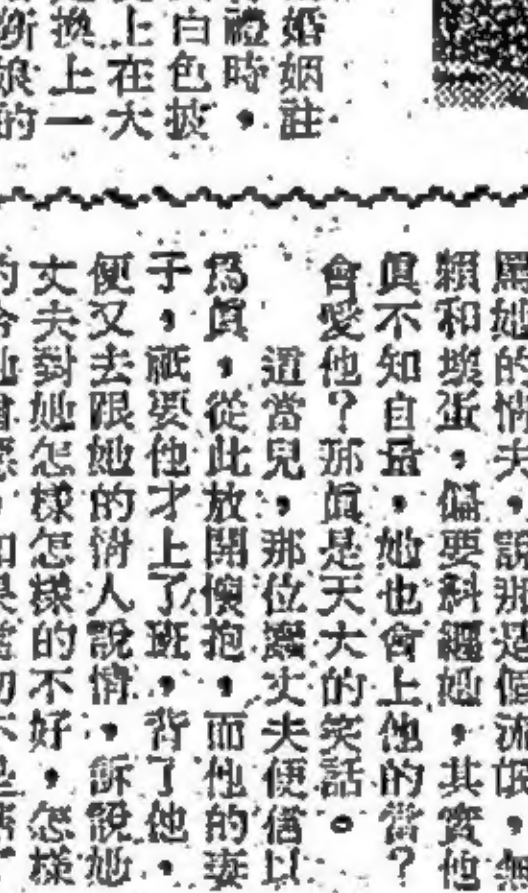 婚姻註
禮時，
白色披
上在大
換上一
娘的
罵她的情夫，說那是個流氓，無
賴和壞蛋，偏要糾纏她，其實他
眞不知自量，她也會上他的當？
會愛他？那眞是天大的笑話。
這當兒，那位蠢丈夫便信以
爲眞，從此放開懷抱，而他的妻
子，祇要他才上了班，背了他，
便又去跟她的情人說情，訴說她
丈夫對她怎樣怎樣的不好，怎樣